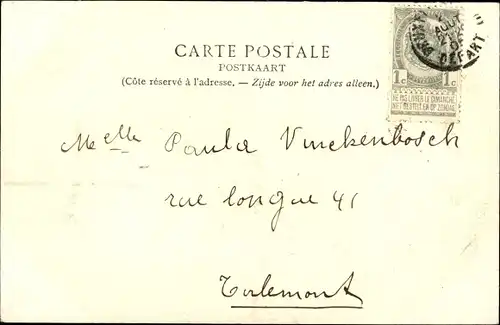 CARTE POSTALE
POSTKAART
(Côte réservé à l'adresse. — Zijde voor het adres alleen.)
1c 1c
NE PAS LIVRER LE DIMANCHE
NIET BESTELLEN OP ZONDAG
AOUT
DEPART
Melle Paula Vinckenbosch
rue longue 41
Tirlemont